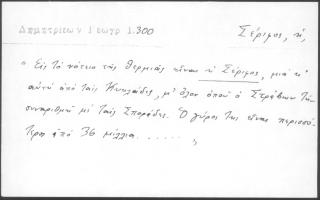 Δημητριεων Γεωγρ 1.300
Σέριφος, ἡ,
" Εἰς τὸ νότειο τῆς Θερμιᾶς εἶναι ἡ Σέριφος, μιὰ κ'
αὐτὴ ἀπὸ ταὶς Κυκλάδες, μ' ὅλον ὁποῦ ὁ Στράβων τὴ
συναριθμεῖ μὲ ταὶς Σποράδες. Ὁ γύρος της εἶναι περισσό-
τερο ἀπὸ 36 μίλλια. . . . . . ,